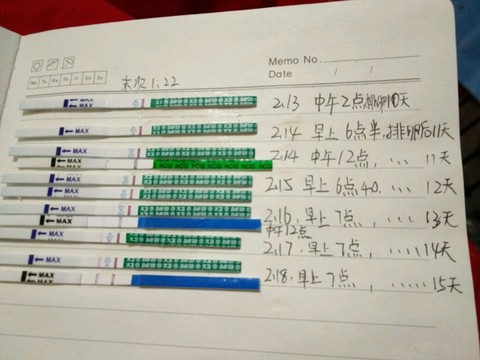 Memo No.
Date / /
Mo Tu We Th Fr Sa Su
末次1:22
MAX
MAX
2.13 中午2点排卵10天
MAX
2.14 早上6点半,排卵后11天
MAX
2.14 中午12点, ... 11天
MAX
MAX
2.15 早上6点40. ... 12天
MAX
MAX
2.16. 早上7点, ... 13天
中午12点
MAX
2.17. 早上7点, ..... 14天
MAX
MAX
2.18. 早上7点, ..... 15天